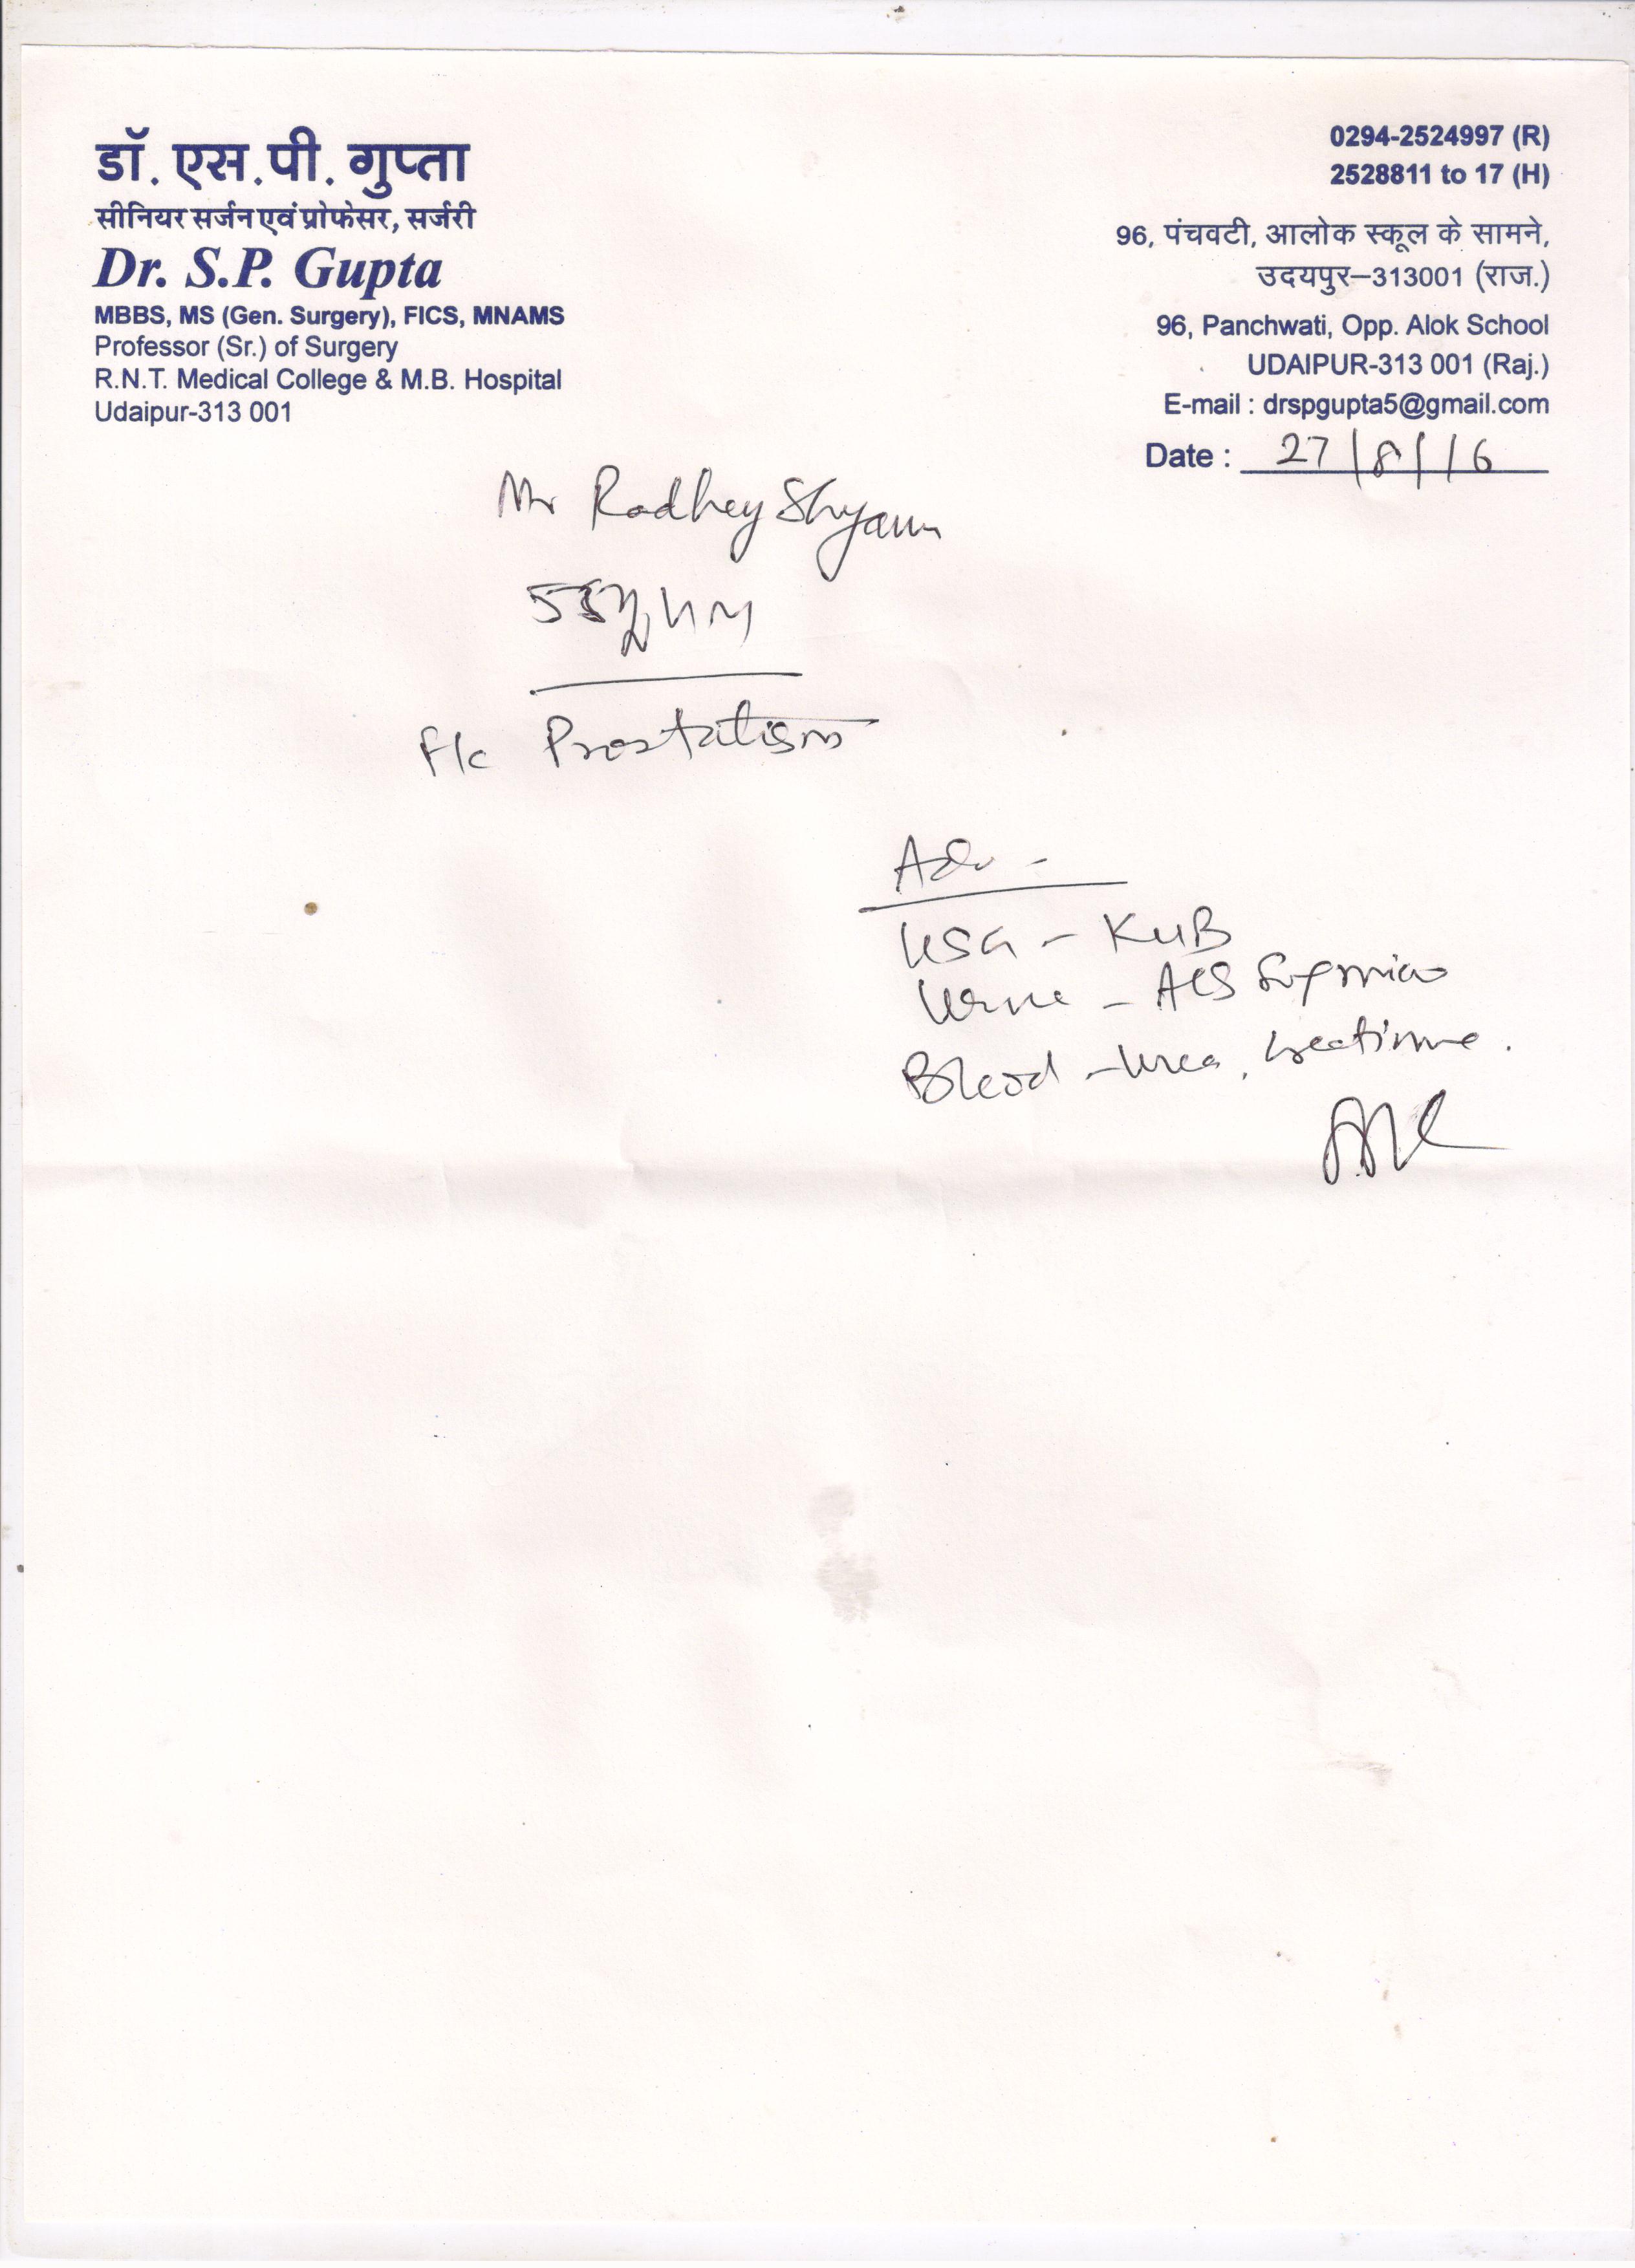 डॉ. एस.पी. गुप्ता
सीनियर सर्जन एवं प्रोफेसर, सर्जरी
Dr. S.P. Gupta
MBBS, MS (Gen. Surgery), FICS, MNAMS
Professor (Sr.) of Surgery
R.N.T. Medical College & M.B. Hospital
Udaipur-313 001
0294-2524997 (R)
2528811 to 17 (H)
96, पंचवटी, आलोक स्कूल के सामने,
उदयपुर–313001 (राज.)
96, Panchwati, Opp. Alok School
UDAIPUR-313 001 (Raj.)
E-mail : drspgupta5@gmail.com
Date : 27/8/16
Mr Radhey Shyam
Prostatism
Adv -
USG - KUB
Urine -
Blood - Urea, Creatinine.